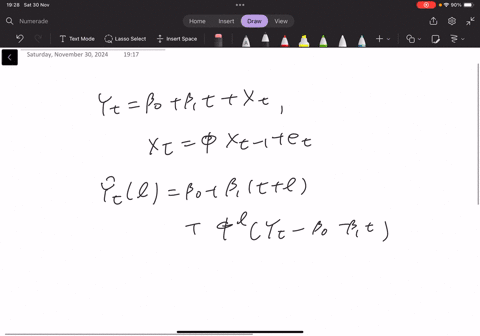 19:28 Sat 30 Nov
90%
Numerade
Home Insert Draw View
Text Mode Lasso Select Insert Space
Saturday, November 30, 2024 19:17
Yₜ = β₀ + β₁ t + Xₜ ,
Xₜ = φ Xₜ₋₁ + eₜ
Ŷₜ(l) = β₀ + β₁ (t+l)
+ φˡ (Yₜ − β₀ − β₁ t)